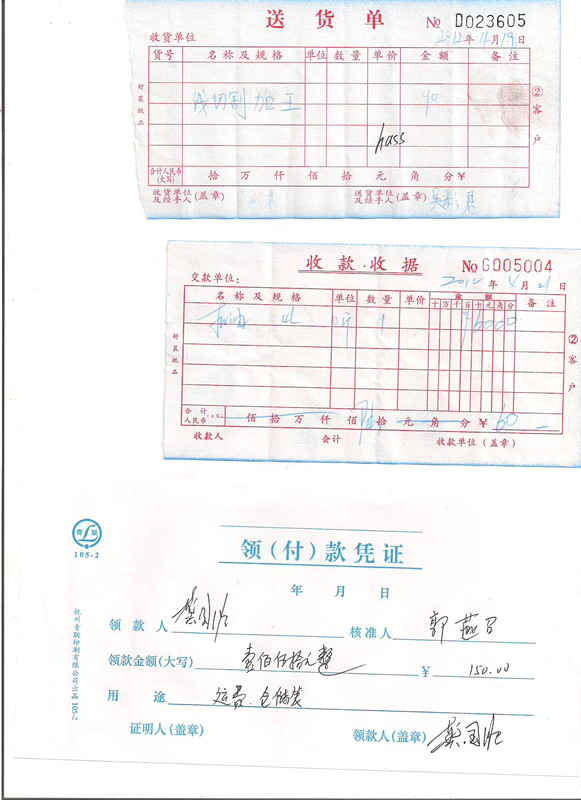 送货单 No D023605
收货单位 2012年4月19日
货号 名称及规格 单位 数量 单价 金额 备注
线切割加工 90
hass
合计人民币(大写) 拾 万 仟 佰 拾 元 角 分 ¥
收货单位及经手人(盖章) 送货单位及经手人(盖章)
舒晨纸品
②客户
收款收据 No G005004
交款单位: 2012年4月21日
名称及规格 单位 数量 单价 金额 备注
十万千百十元角分
4L 1 6000
合计人民币(大写) 佰拾万仟佰陆拾元角分 ¥60
收款人 会计 收款单位(盖章)
舒晨纸品
②客户
青联
105-2
领(付)款凭证
年 月 日
领款人 核准人 郭
领款金额(大写) 壹佰伍拾元整 ¥ 150.00
用途 运费.仓储费
证明人(盖章) 领款人(盖章)
杭州青联印刷有限公司出品 105-2